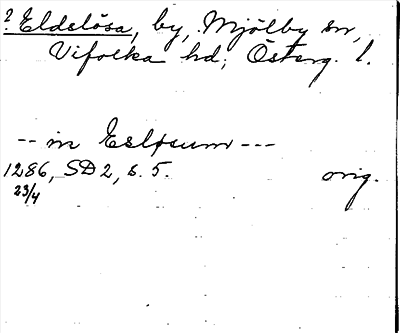 ? Eldslösa, by, Mjölby sn,
Vifolka hd; Österg. l.
-- in Esløsum ---
1286, SD 2, s. 5. orig.
23/4